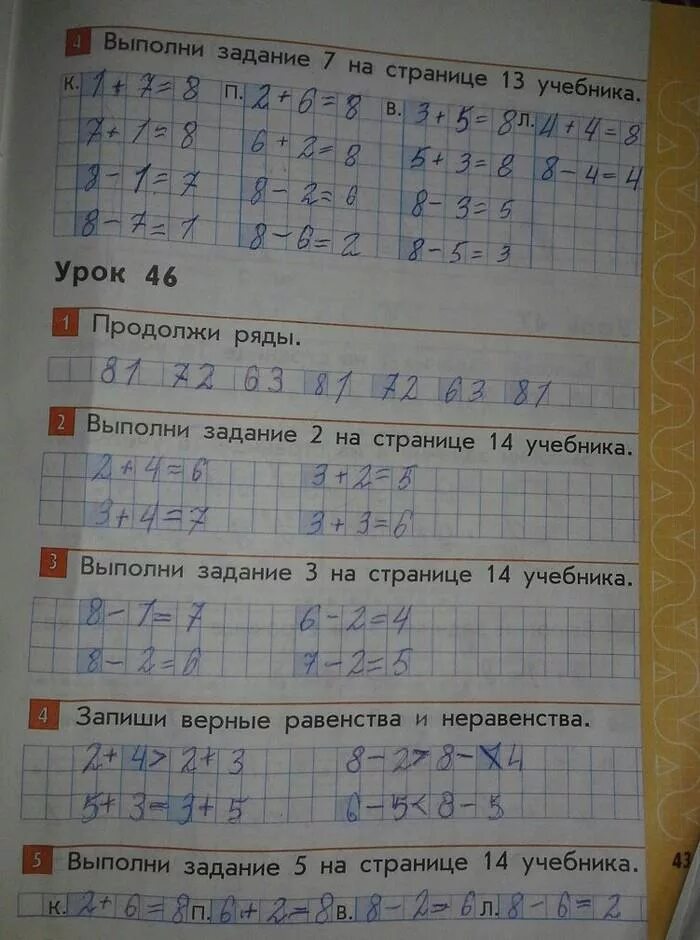 4 Выполни задание 7 на странице 13 учебника.
к. 1+7=8 п. 2+6=8 в. 3+5=8 л. 4+4=8
7+1=8 6+2=8 5+3=8 8-4=4
8-1=7 8-2=6 8-3=5
8-7=1 8-6=2 8-5=3
Урок 46
1 Продолжи ряды.
81 72 63 81 72 63 81
2 Выполни задание 2 на странице 14 учебника.
2+4=6 3+2=5
3+4=7 3+3=6
3 Выполни задание 3 на странице 14 учебника.
8-1=7 6-2=4
8-2=6 7-2=5
4 Запиши верные равенства и неравенства.
2+4>2+3 8-2>8-4
5+3=3+5 6-5<8-5
5 Выполни задание 5 на странице 14 учебника.
43
к. 2+6=8 п. 6+2=8 в. 8-2=6 л. 8-6=2